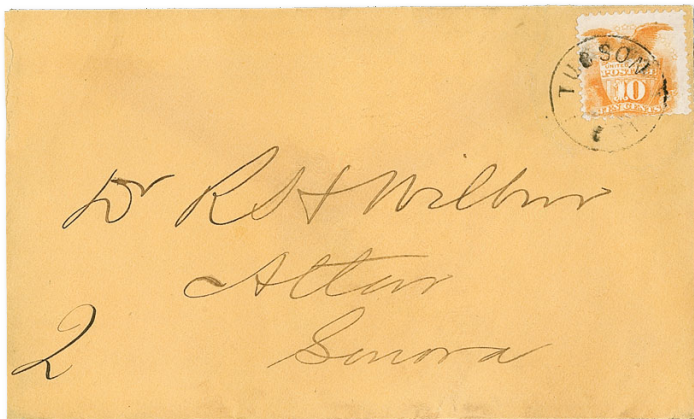 TUCSON
UNITED STATES
POSTAGE
10
TEN CENTS
Dr R A Wilbur
Altar
Sonora
2